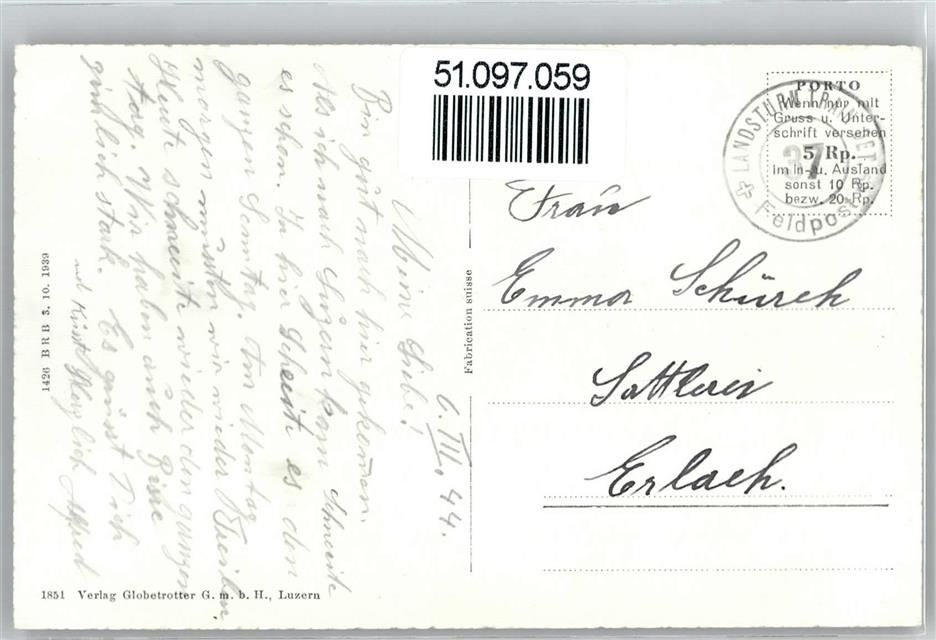 51.097.059
PORTO
Wenn nur mit
Gruss u. Unter-
schrift versehen
5 Rp.
im In- u. Ausland
sonst 10 Rp.
bezw. 20 Rp.
LANDSTURM
37
Feldpost
Frau
Emma Schürch
Sattlerei
Erlach.
Fabrication suisse
6. III. 44.
Meine Liebe!
Bin gut nach hier gekommen.
Als ich nach Luzern kam schneite
es schon. In hier schneit es den
ganzen Sonntag. Am Montag
morgen mussten wir wieder
Heute schneite es wieder den ganzen
Tag. Wir haben auch Biese
ziemlich stark. Es grüsst Dich
und küsst Herzlich Alfred
1426 B R B 3. 10. 1939
1851 Verlag Globetrotter G. m. b. H., Luzern